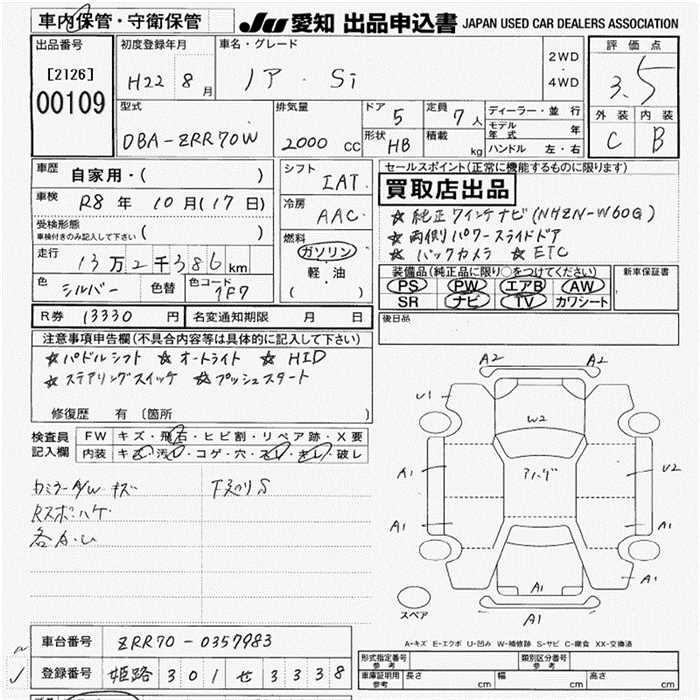 車内保管・守衛保管
JU 愛知 出品申込書 JAPAN USED CAR DEALERS ASSOCIATION
出品番号
[2126]
00109
初度登録年月
H22 8月
車名・グレード
ノア・Si
2WD
・
4WD
評価点
3.5
外装 内装
C B
型式
DBA-ZRR70W
排気量
2000 cc
ドア 5
形状 HB
定員 7人
積載 kg
ディーラー・並行
モデル年式 年
ハンドル 左・右
車歴
自家用・( )
車検
R8年10月(17日)
受検形態
車検付きのみ記入して下さい ( )
走行
13万2千386km
色 シルバー 色替 色コード 1F7
シフト
IAT
冷房
AAC
燃料
ガソリン
軽・油
( )
セールスポイント(正常に機能するものに限ります)
買取店出品
☆純正ワイドナビ(NHZN-W60G)
☆両側パワースライドドア
☆バックカメラ ☆ETC
装備品(純正品に限り○をつけてください)
PS PW エアB AW
SR ナビ TV カワシート
新車保証書
後日品
R券 13330円 名変通知期限 月 日
注意事項申告欄(不具合内容等は具体的に記入して下さい)
☆パドルシフト ☆オートライト ☆HID
☆ステアリングスイッチ ☆プッシュスタート
修復歴 有(箇所 )
検査員記入欄
FW キズ・飛石・ヒビ割・リペア跡・X要
内装 キズ・汚レ・コゲ・穴・スレ・キレ・破レ
カミラーAW キズ
下廻りS
Rスポハゲ
A2 A2
U1
W2
A1
アハゲ
U2
A1
A1
A1
A1
A1
スペア
A-キズ E-エクボ U-凹み W-補修跡 S-サビ C-腐食 XX-交換済
車台番号 ZRR70-0357983
登録番号 姫路 301 せ 3338
形式指定番号 参考
類別区分番号 参考
車庫証明用 参考 長さ cm 幅 cm 高さ cm